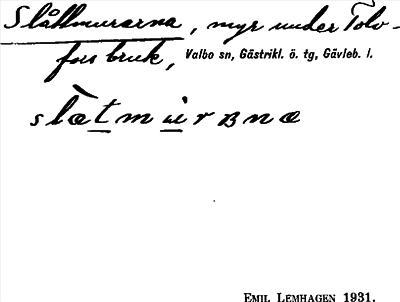 Slåttmurarna, myr under Tolv-
fors bruk, Valbo sn, Gästrikl. ö. tg, Gävleb. l.
EMIL LEMHAGEN 1931.